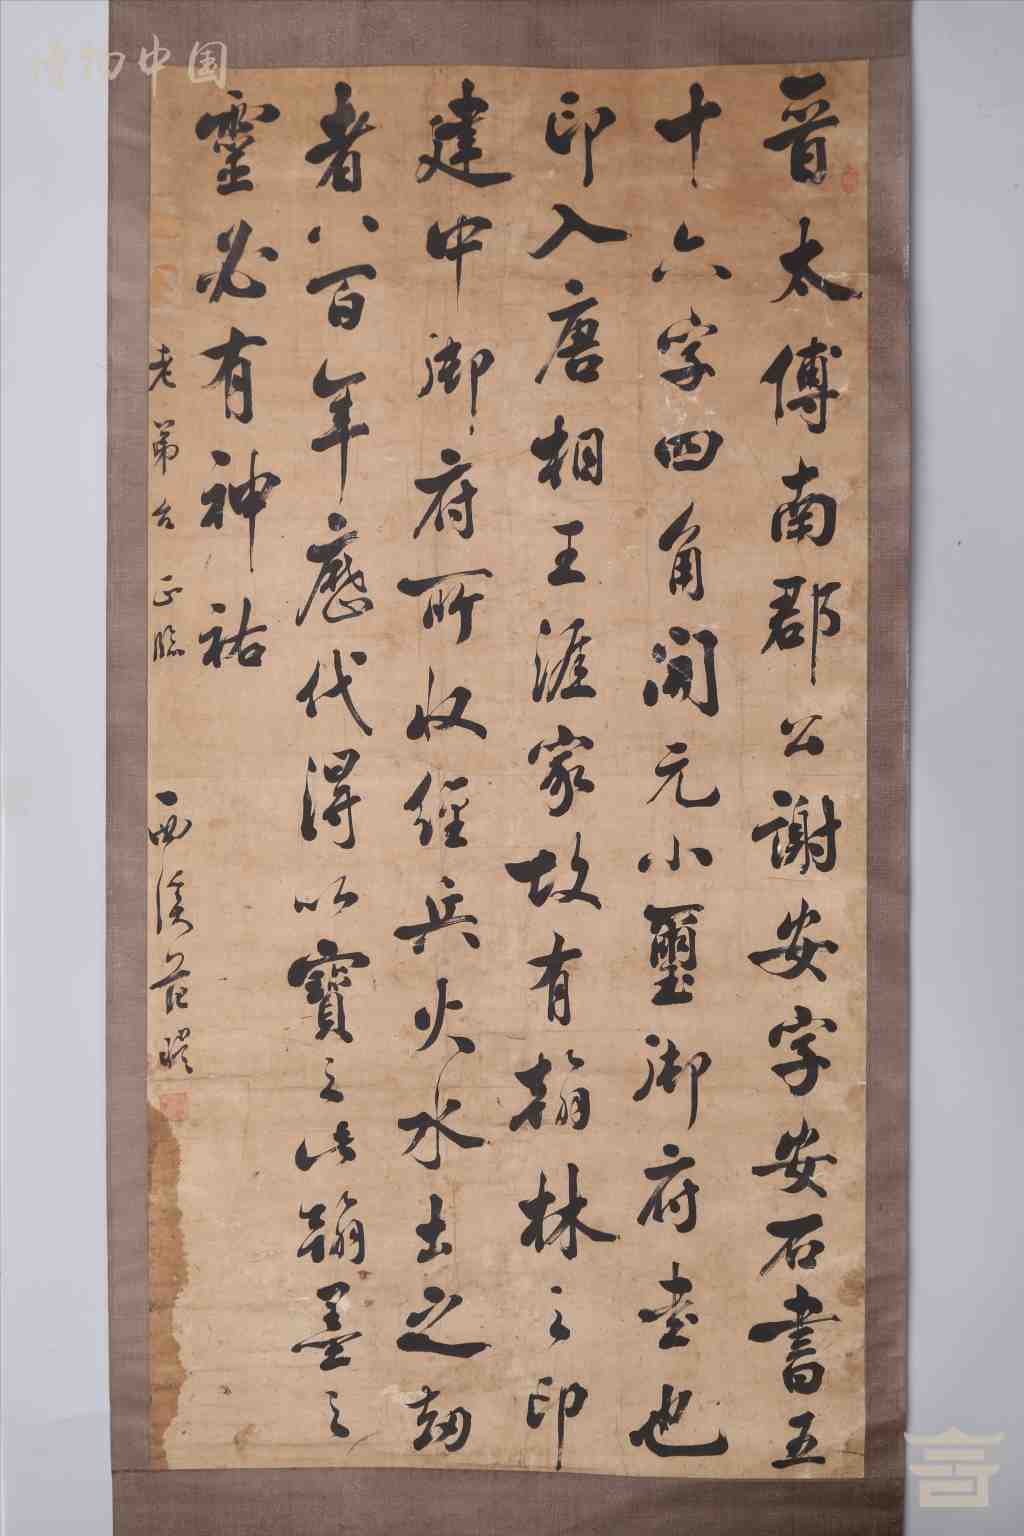 晉太傅南郡公謝安字安石書五
十六字四角開元小璽御府書也
印入唐相王涯家故有翰林之印
建中御府所收經兵火水土之劫
者八百年歷代得以寶之此翰墨之
靈必有神祐
老弟台 正臨
西溪范
博物中国